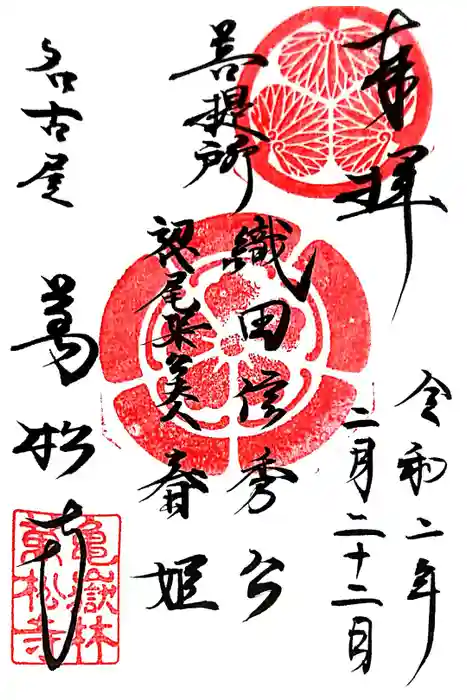 奉拝
令和二年
二月二十二日
菩提所
織田信秀公
美春姫
名古屋
萬松寺
亀嶽林
萬松寺